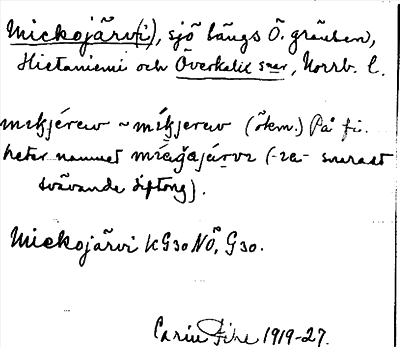 Mickojärv(i), sjö längs Ö. gränsen,
Hietaniemi och Överkalix snr, Norrb. l.
mɩkjérew ~ míkjerew (ökm.) På fi.
heter namnet mɩ́ağajárvɩ (-ɩa- snarast
svävande diftong).
Mickojärvi KG30NÖ, G30.
Carin Pihl 1919-27.